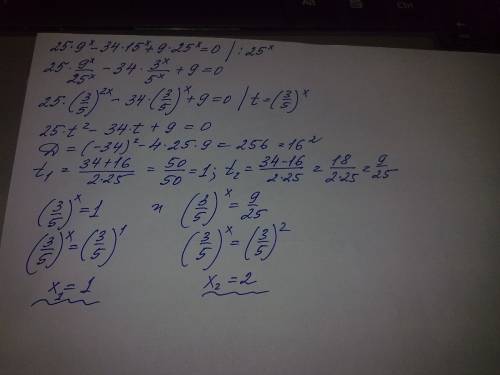 25·9ˣ-34·15ˣ+9·25ˣ=0 /:25ˣ
25·9ˣ/25ˣ - 34·3ˣ/5ˣ + 9=0
25·(3/5)²ˣ - 34·(3/5)ˣ+9=0 / t=(3/5)ˣ
25·t² - 34·t + 9 = 0
D = (-34)² - 4·25·9 = 256 = 16²
t₁ = (34+16)/(2·25) = 50/50 = 1; t₂ = (34-16)/(2·25) = 18/(2·25) = 9/25
(3/5)ˣ=1 и (3/5)ˣ = 9/25
(3/5)ˣ=(3/5)¹ (3/5)ˣ = (3/5)²
x₁=1 x₂=2